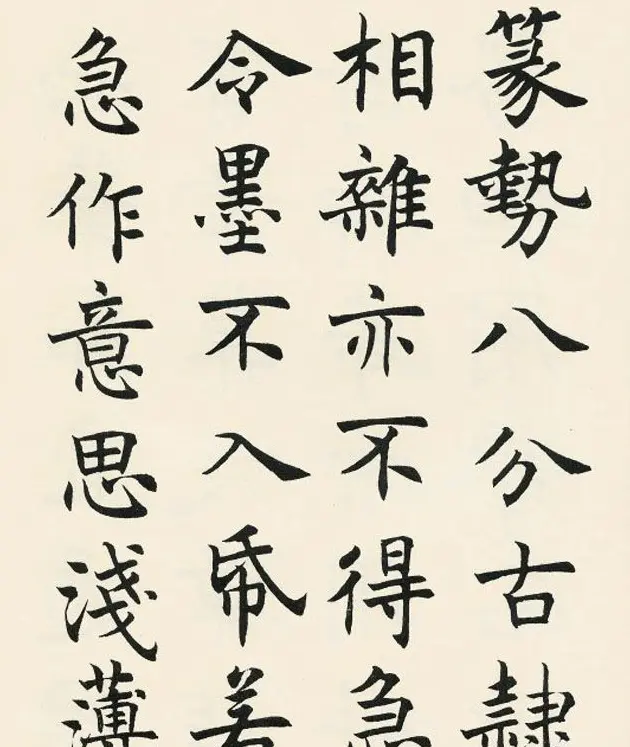 篆勢八分古隸
相雜亦不得急
令墨不入帋若
急作意思淺薄